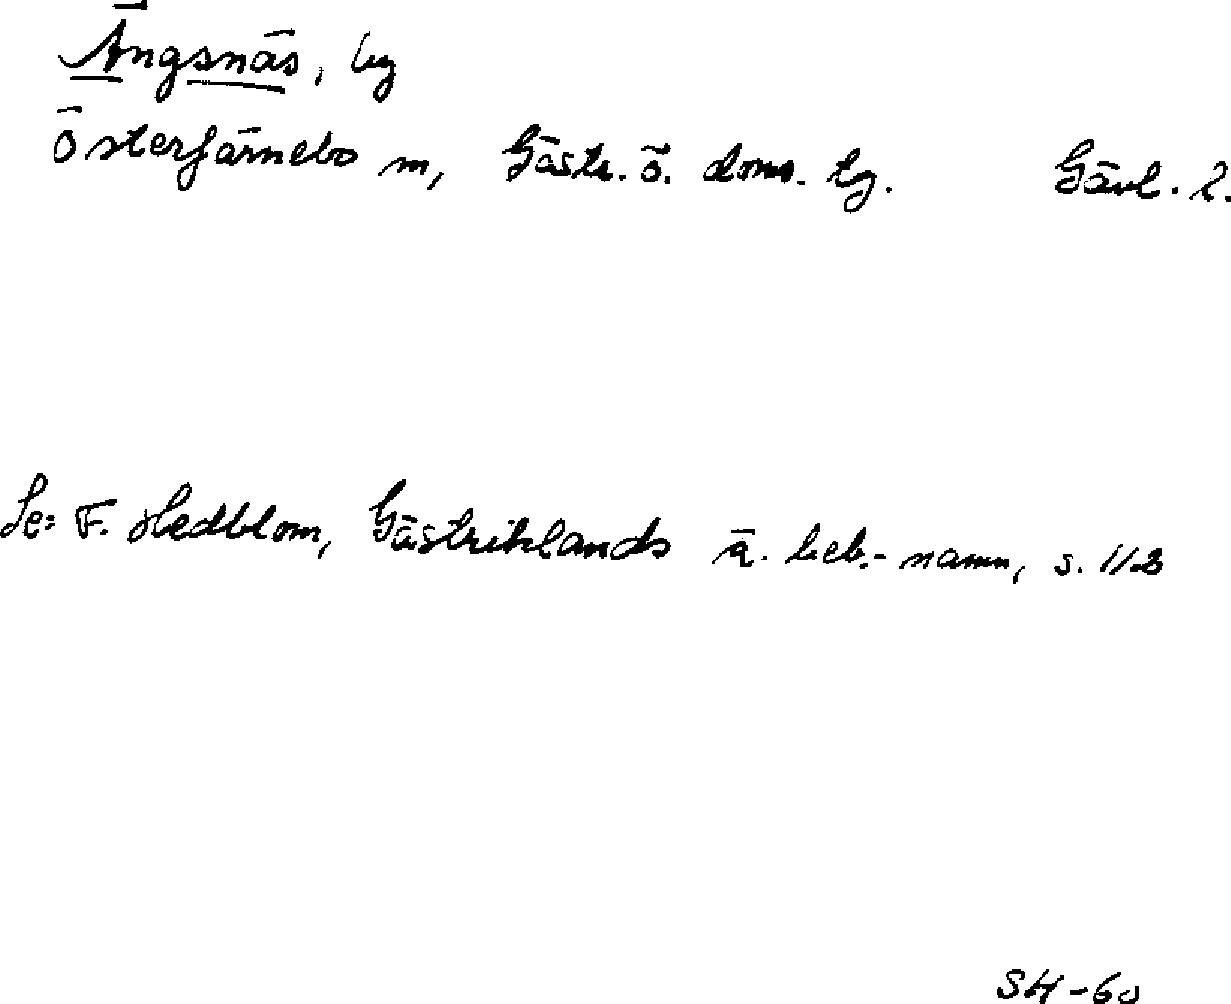 Ängsnäs, by
Österfärnebo sn, Gästr. ö. doms. tg. Gävl. l.
Se: F. Hedblom, Gästriklands ä. beb.-namn, s. 112
SH-60